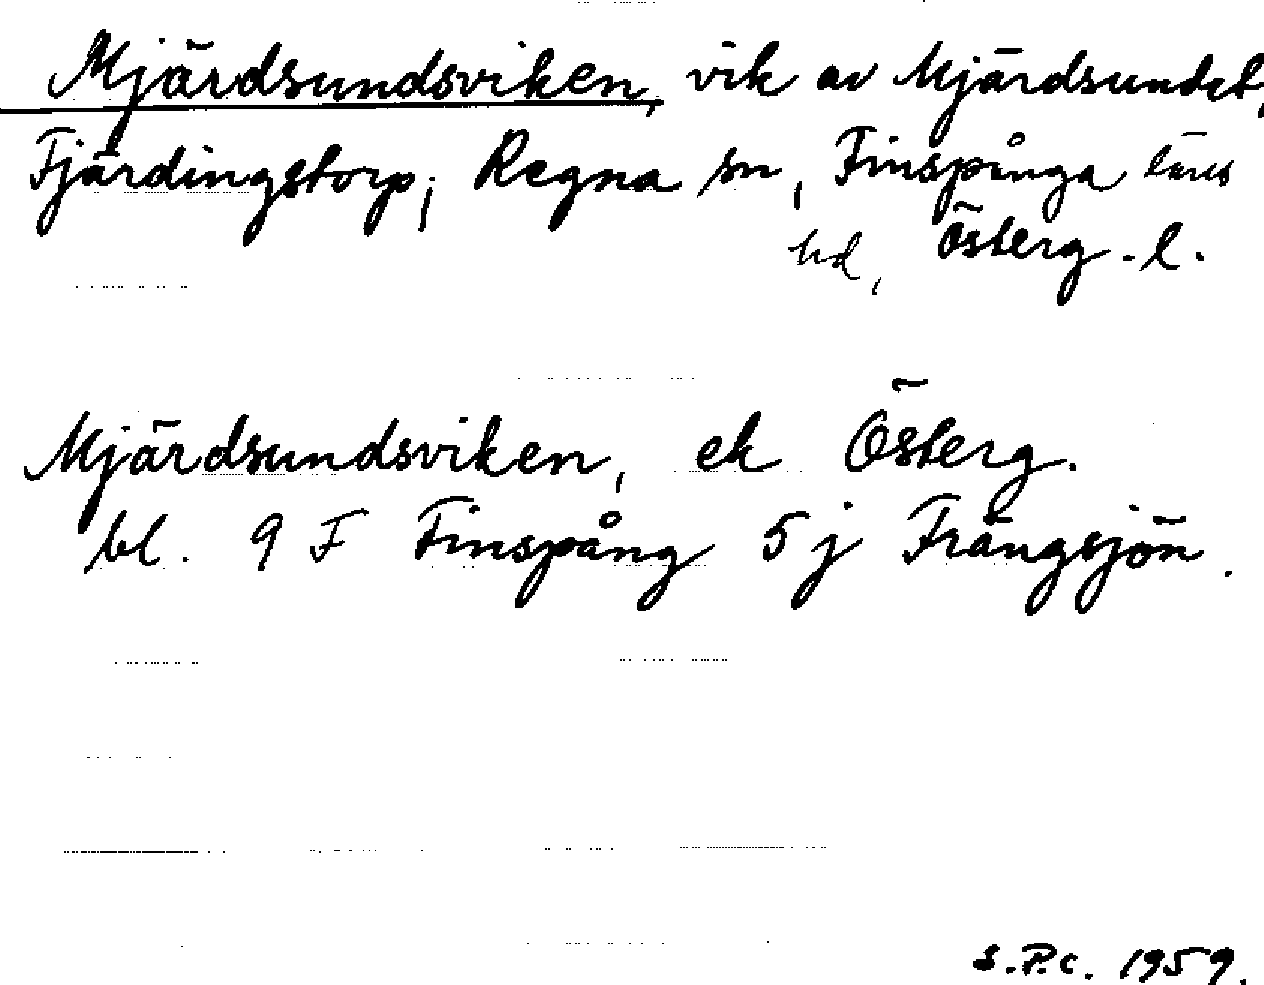 Mjärdsundsviken, vik av Mjärdsundet,
Fjärdingstorp; Regna sn, Finspånga läns
hd, Österg. l.
Mjärdsundsviken, ek Österg.
bl. 9 F Finspång 5 j Frängsjön.
S.P.c. 1959.